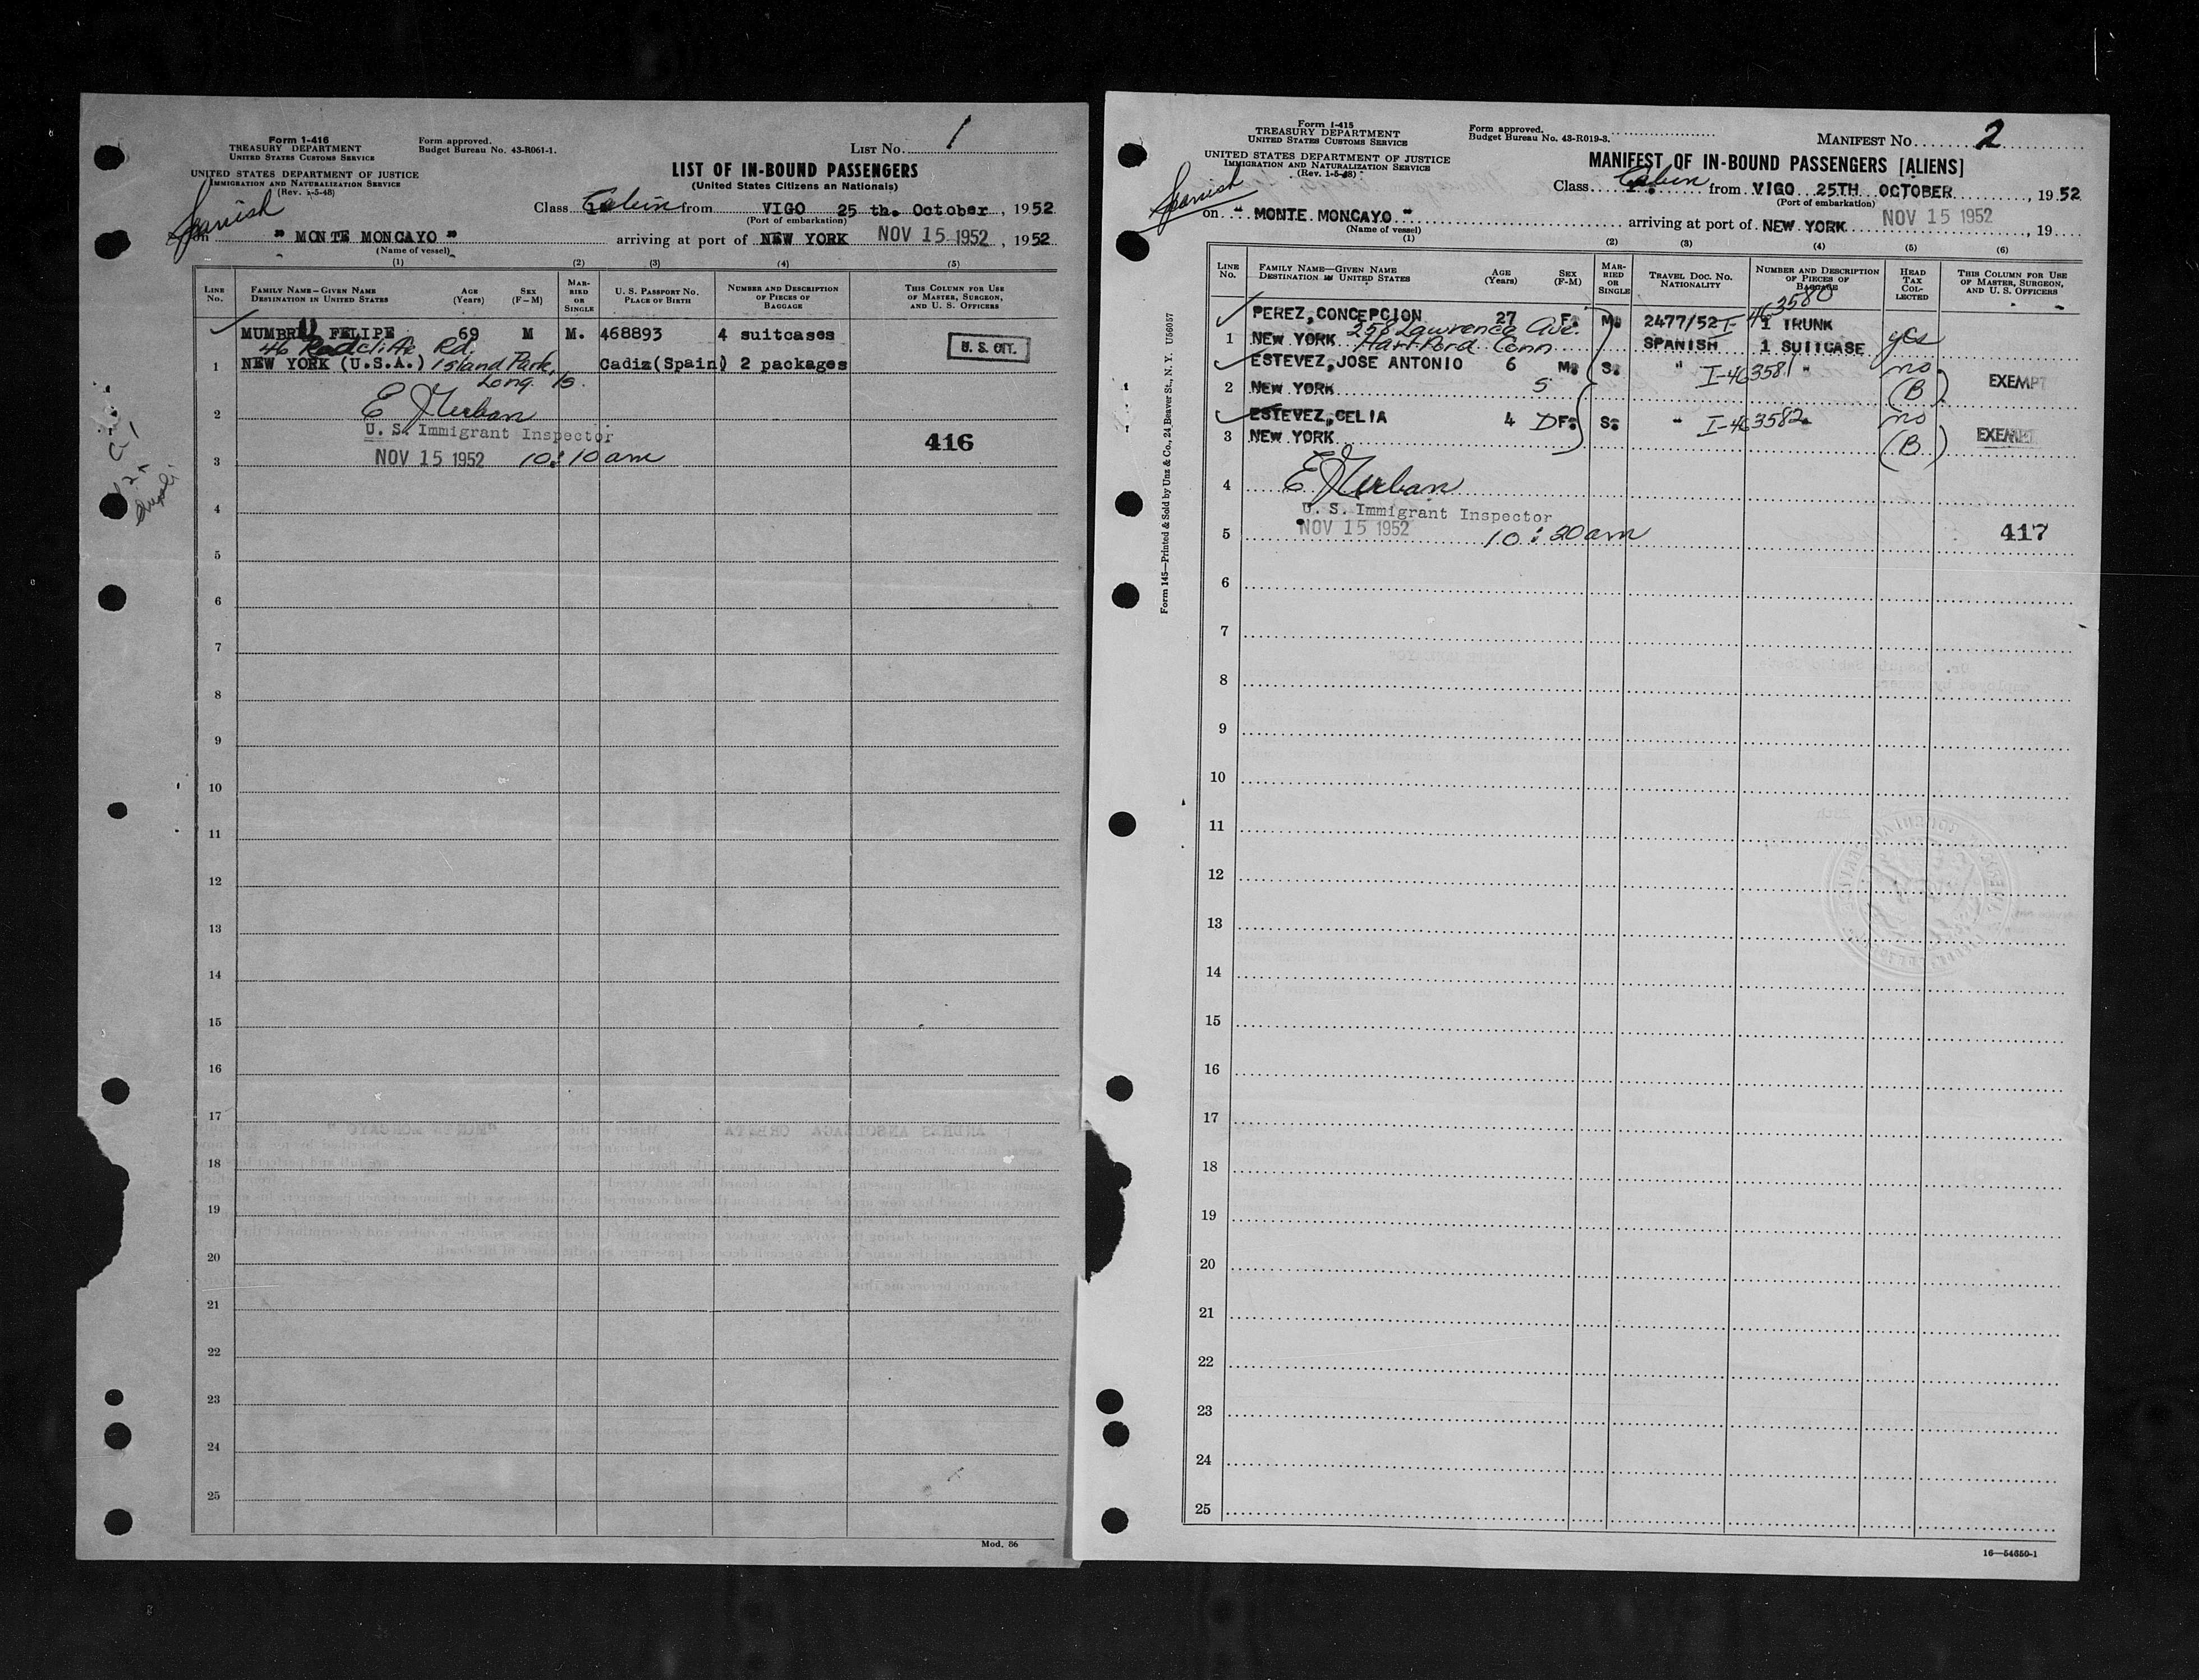 Form 1-416
TREASURY DEPARTMENT
UNITED STATES CUSTOMS SERVICE
Form approved.
Budget Bureau No. 43-R061-1.
LIST NO. 1
UNITED STATES DEPARTMENT OF JUSTICE
IMMIGRATION AND NATURALIZATION SERVICE
(Rev. 1-5-48)
LIST OF IN-BOUND PASSENGERS
(United States Citizens an Nationals)
Spanish
Class Cabin from VIGO 25 th. October, 1952
(Port of embarkation)
on " MONTE MONCAYO " arriving at port of NEW YORK NOV 15 1952, 1952
(Name of vessel)
(1) (2) (3) (4) (5)
LINE No. FAMILY NAME—GIVEN NAME DESTINATION IN UNITED STATES AGE (Years) SEX (F-M) MARRIED OR SINGLE U. S. PASSPORT NO. PLACE OF BIRTH NUMBER AND DESCRIPTION OF PIECES OF BAGGAGE THIS COLUMN FOR USE OF MASTER, SURGEON, AND U. S. OFFICERS
MUMBRU FELIPE 69 M M. 468893 4 suitcases U. S. CIT.
46 Radcliffe Rd.
1 NEW YORK (U.S.A.) Island Park, Cadiz(Spain) 2 packages
Long Is.
2 E Urban
U. S. Immigrant Inspector 416
3 NOV 15 1952 10:10 am
4
5
6
7
8
9
10
11
12
13
14
15
16
17
18
19
20
21
22
23
24
25
Mod. 86
Form I-415
TREASURY DEPARTMENT
UNITED STATES CUSTOMS SERVICE
Form approved.
Budget Bureau No. 43-R019-3.
MANIFEST NO. 2
UNITED STATES DEPARTMENT OF JUSTICE
IMMIGRATION AND NATURALIZATION SERVICE
(Rev. 1-5-48)
MANIFEST OF IN-BOUND PASSENGERS [ALIENS]
Spanish
Class Cabin from VIGO 25TH OCTOBER, 1952
(Port of embarkation)
on " MONTE MONCAYO " arriving at port of NEW YORK NOV 15 1952, 19
(Name of vessel)
(1) (2) (3) (4) (5) (6)
LINE No. FAMILY NAME—GIVEN NAME DESTINATION IN UNITED STATES AGE (Years) SEX (F-M) MARRIED OR SINGLE TRAVEL DOC. NO. NATIONALITY NUMBER AND DESCRIPTION OF PIECES OF BAGGAGE HEAD TAX COLLECTED THIS COLUMN FOR USE OF MASTER, SURGEON, AND U. S. OFFICERS
PEREZ, CONCEPCION 27 F. M. 2477/52 I-463580 1 TRUNK
1 NEW YORK 258 Lawrence Ave. SPANISH 1 SUITCASE yes
Hartford Conn
ESTEVEZ, JOSE ANTONIO 6 M. S. " I-463581 " no
2 NEW YORK S (B) EXEMPT
ESTEVEZ, CELIA 4 D F. S. " I-463582 no
3 NEW YORK (B) EXEMPT
4 E Urban
U. S. Immigrant Inspector
5 NOV 15 1952 10:20 am 417
6
7
8
9
10
11
12
13
14
15
16
17
18
19
20
21
22
23
24
25
Form 145—Printed & Sold by Unz & Co., 24 Beaver St., N. Y. U56057
16—54650-1